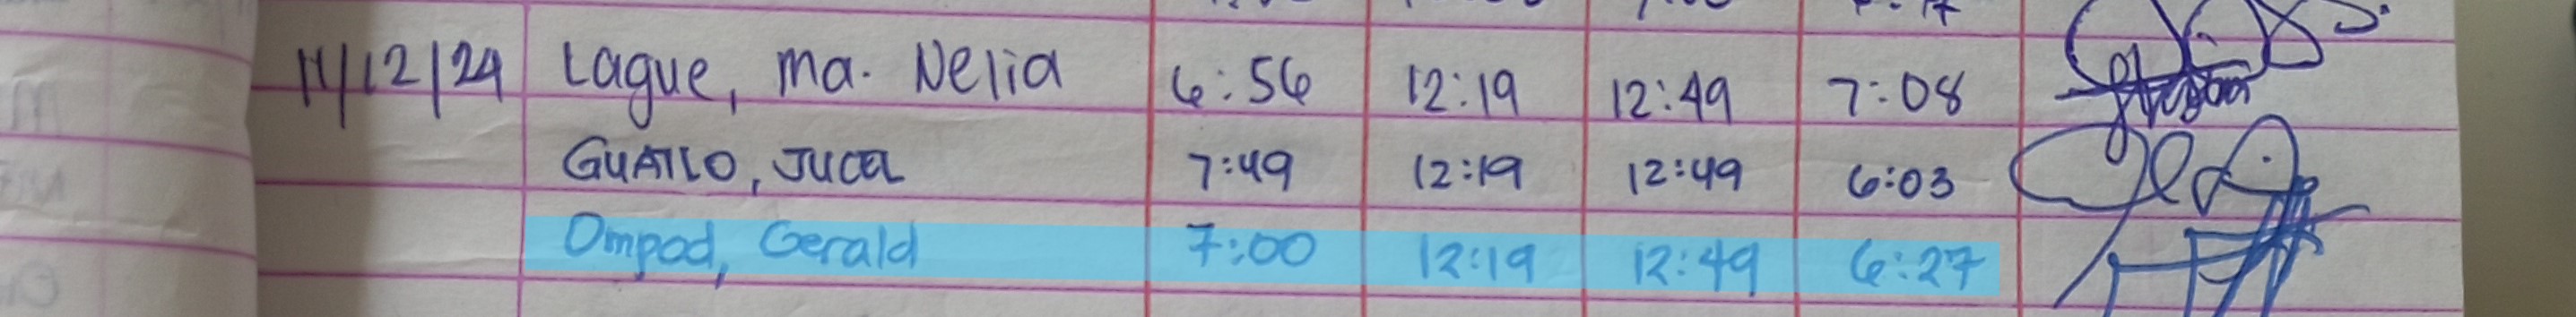 11/12/24 Lague, Ma. Nelia 6:56 12:19 12:49 7:08
GUATLO, JUCEL 7:49 12:19 12:49 6:03
Ompod, Gerald 7:00 12:19 12:49 6:27